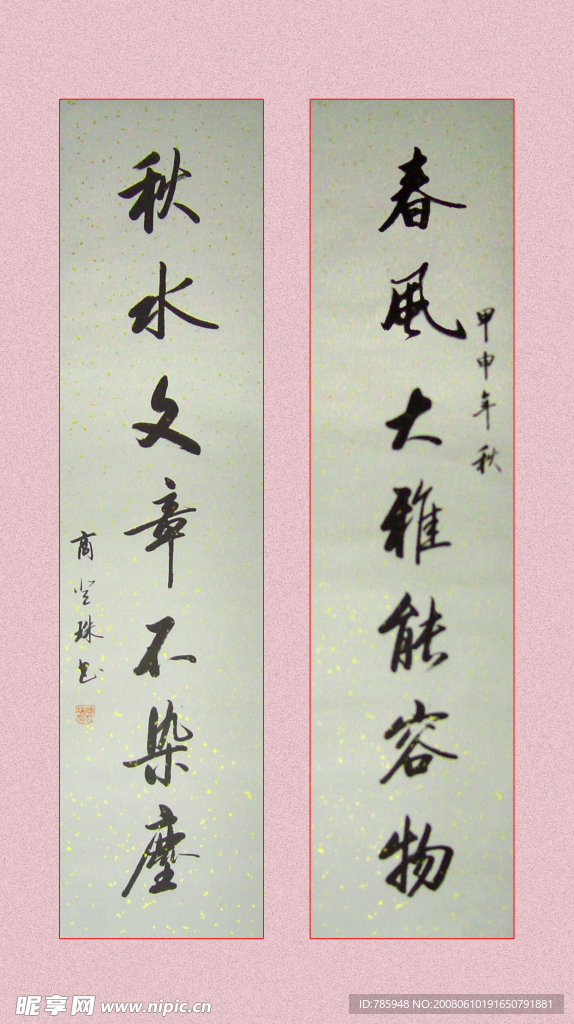 春风大雅能容物
甲申年秋
秋水文章不染塵
昵享网 www.nipic.cn
ID:785948 NO:20080610191650791881